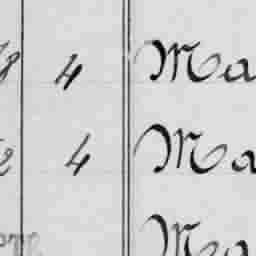 8 4 Ma
2 4 Ma
Ma